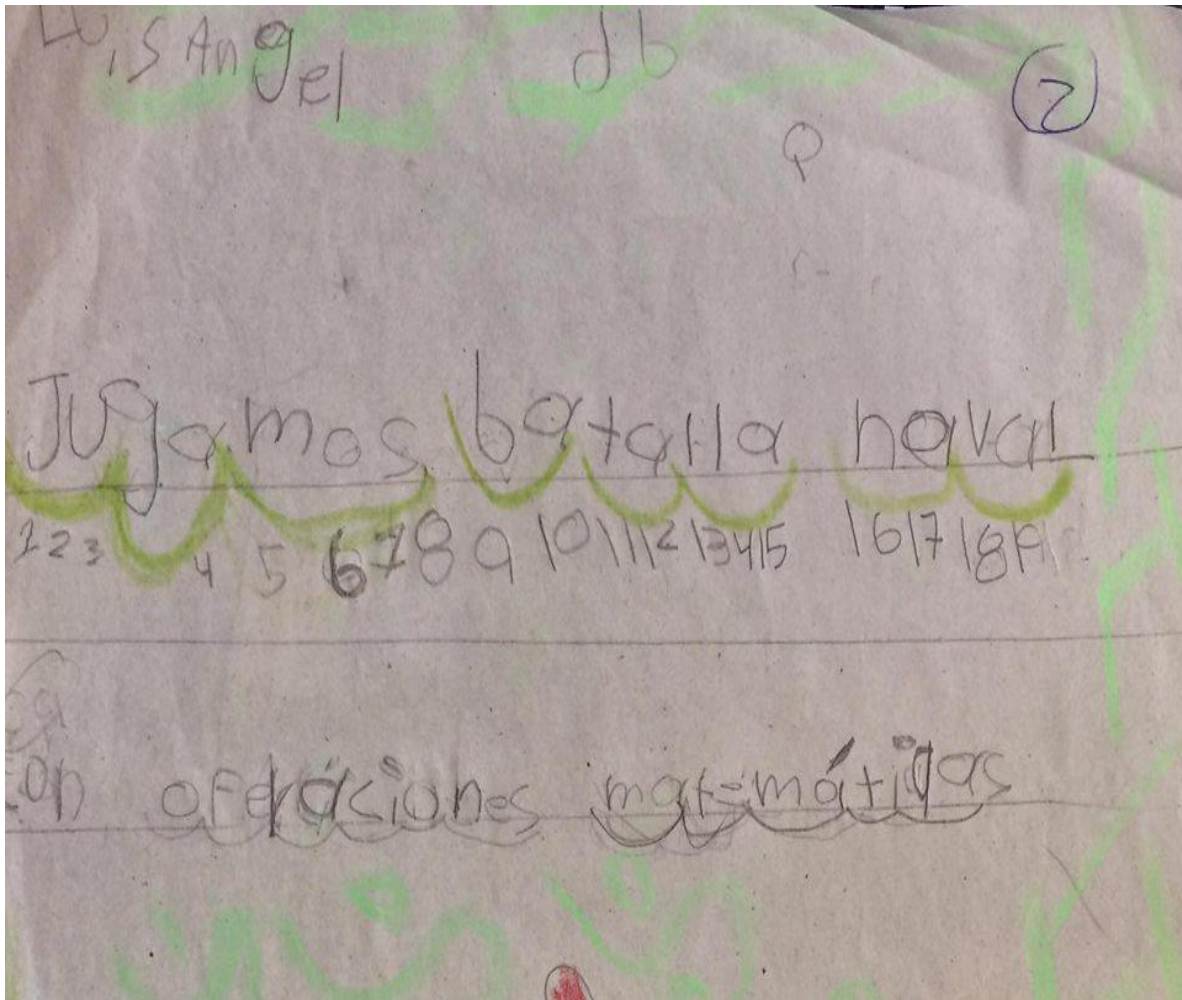 Luis Angel db 2
Q
Jugamos batalla naval
1 2 3 4 5 6 7 8 9 10 11 12 13 14 15 16 17 18 19
con operasiones matemáticas